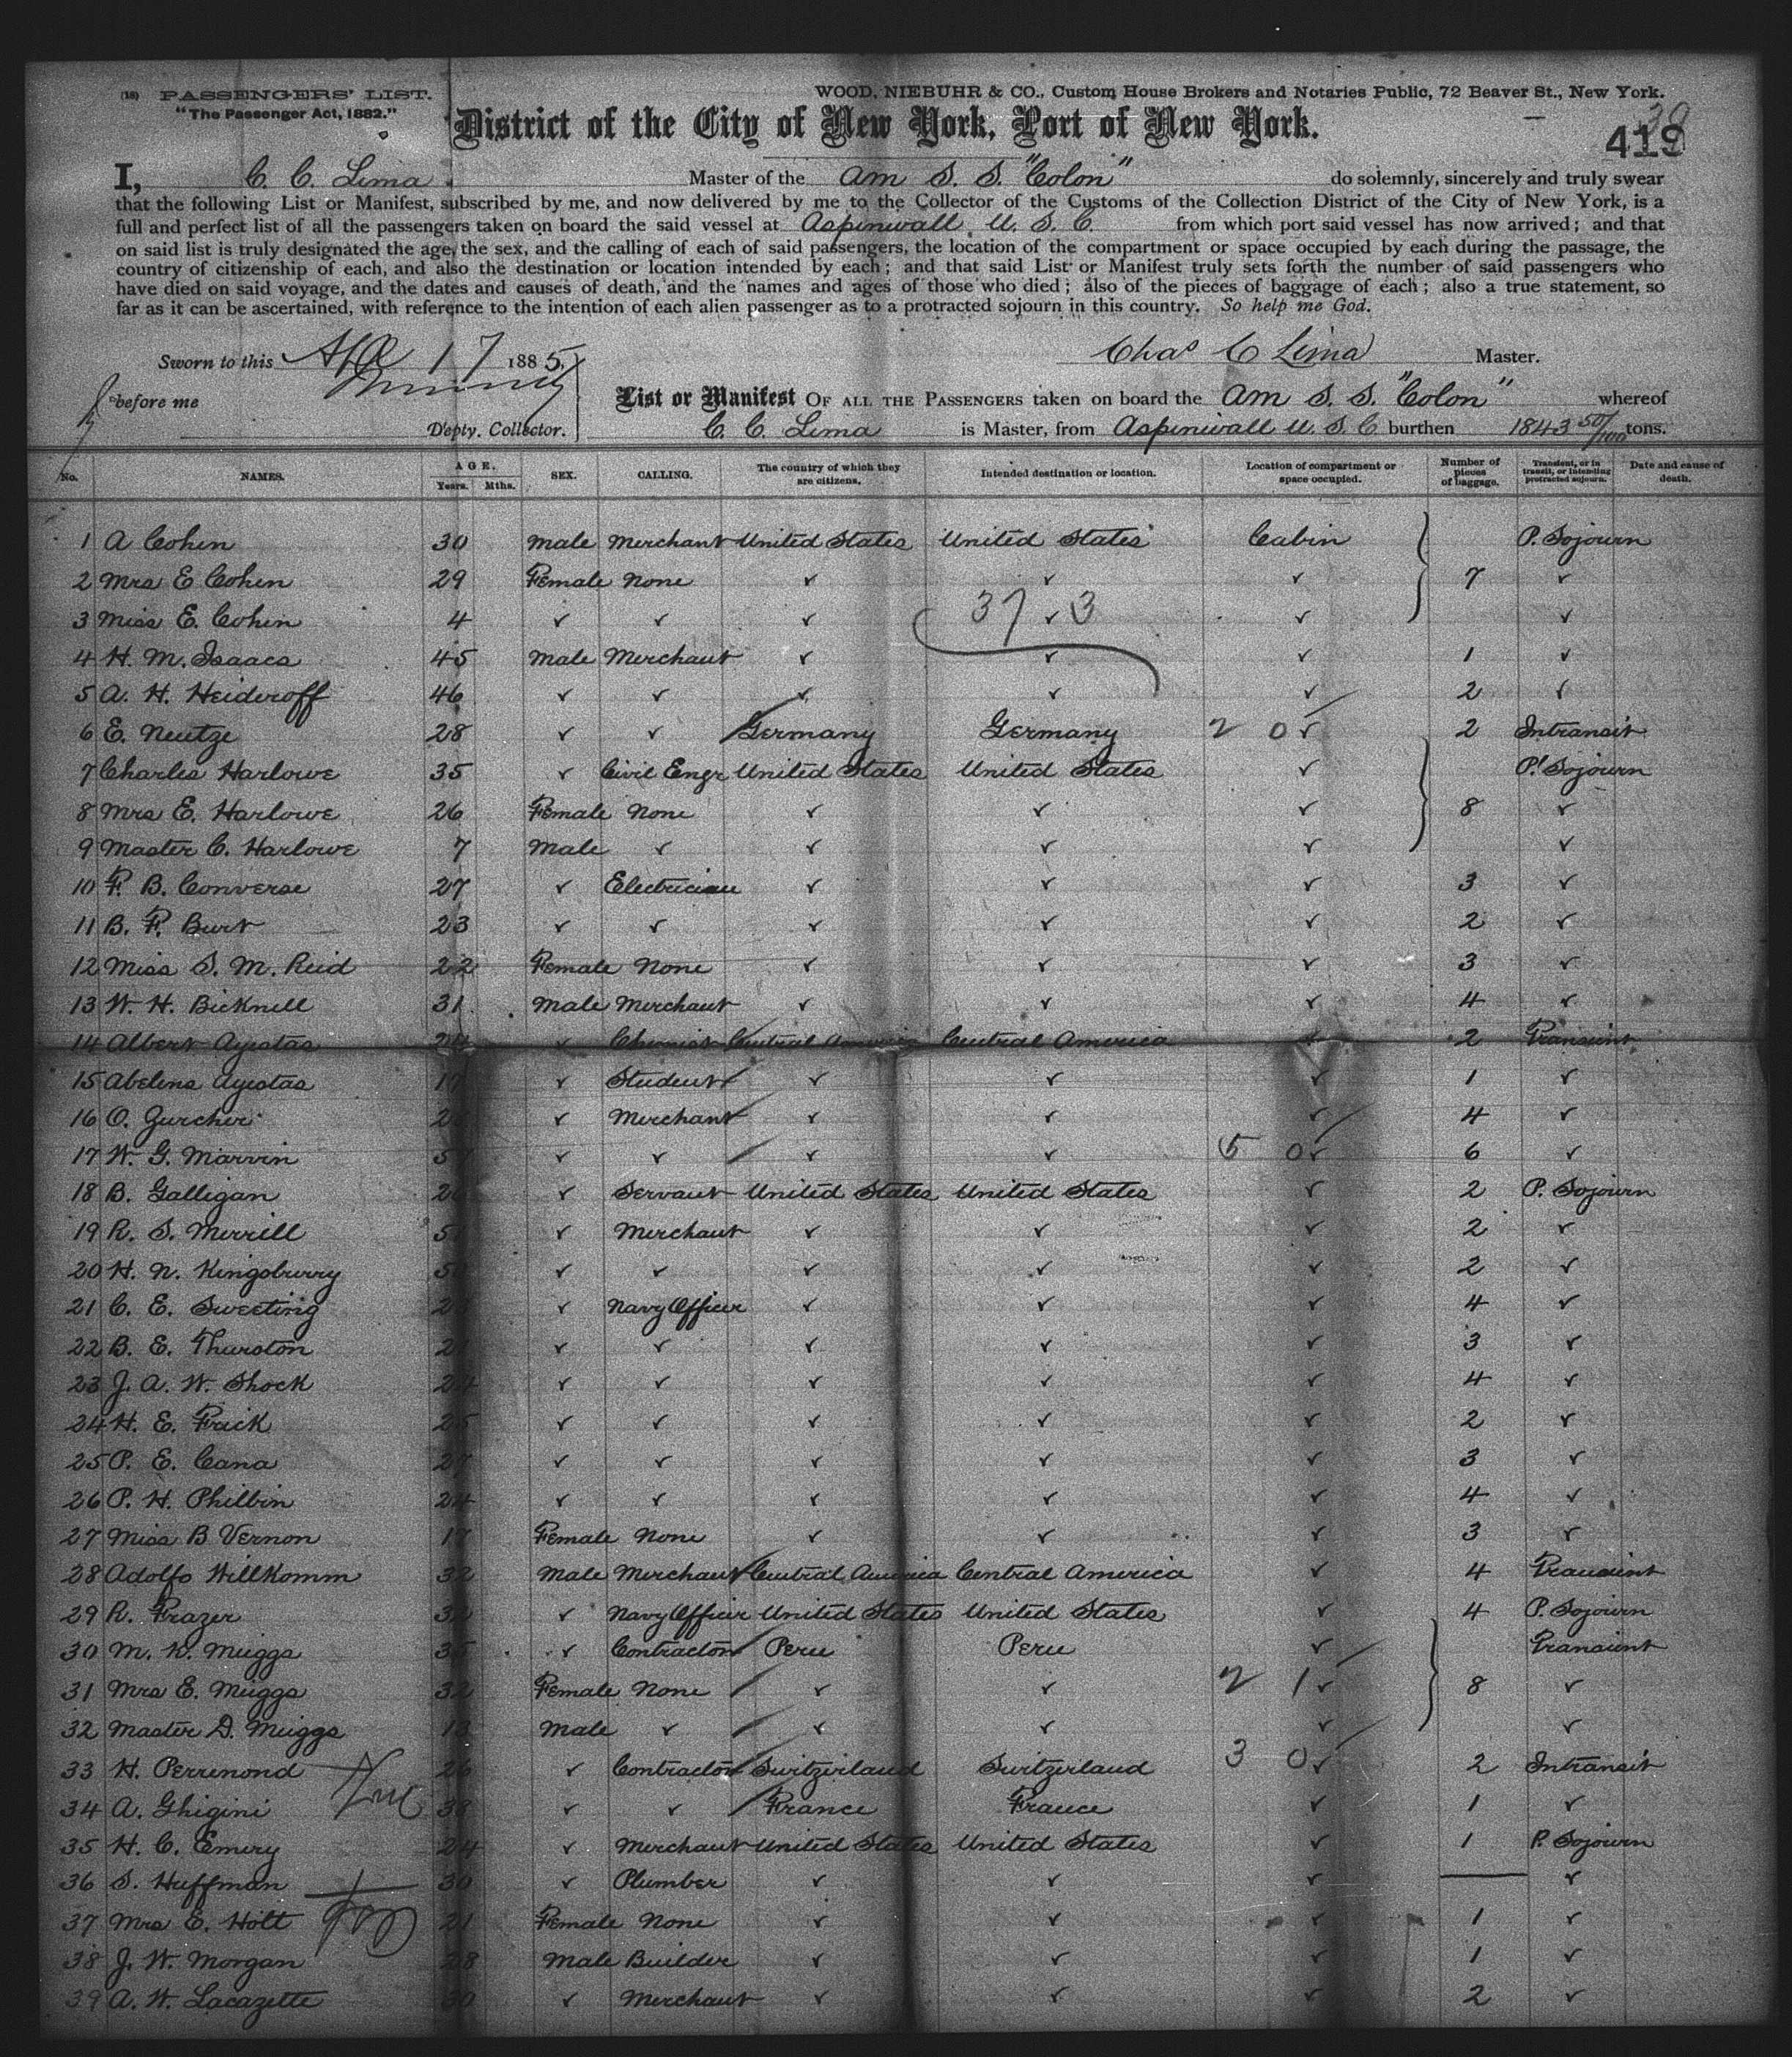 (18) PASSENGERS' LIST.
WOOD, NIEBUHR & CO., Custom House Brokers and Notaries Public, 72 Beaver St., New York.
"The Passenger Act, 1882."
District of the City of New York, Port of New York.
39
419
I, C. C. Lima Master of the Am S. S. "Colon" do solemnly, sincerely and truly swear
that the following List or Manifest, subscribed by me, and now delivered by me to the Collector of the Customs of the Collection District of the City of New York, is a
full and perfect list of all the passengers taken on board the said vessel at Aspinwall U. S. C. from which port said vessel has now arrived; and that
on said list is truly designated the age, the sex, and the calling of each of said passengers, the location of the compartment or space occupied by each during the passage, the
country of citizenship of each, and also the destination or location intended by each; and that said List or Manifest truly sets forth the number of said passengers who
have died on said voyage, and the dates and causes of death, and the names and ages of those who died; also of the pieces of baggage of each; also a true statement, so
far as it can be ascertained, with reference to the intention of each alien passenger as to a protracted sojourn in this country. So help me God.
Sworn to this 17 1885,
Chas C Lima Master.
before me
List or Manifest OF ALL THE PASSENGERS taken on board the Am S. S. "Colon" whereof
Depty. Collector.
C. C. Lima is Master, from Aspinwall U. S. C burthen 1843 50/100 tons.
No. NAMES. AGE. Years. Mths. SEX. CALLING. The country of which they are citizens. Intended destination or location. Location of compartment or space occupied. Number of pieces of baggage. Transient, or in transit, or intending protracted sojourn. Date and cause of death.
1 A Cohen 30 Male Merchant United States United States Cabin P. Sojourn
2 Mrs E Cohen 29 Female None ✓ ✓ ✓ 7 ✓
3 Miss E. Cohen 4 ✓ ✓ ✓ 37 ✓ 3 ✓ ✓
4 H. M. Isaacs 45 Male Merchant ✓ ✓ ✓ 1 ✓
5 A. H. Heideroff 46 ✓ ✓ ✓ ✓ ✓ 2 ✓
6 E. Neutze 28 ✓ ✓ Germany Germany 2 0 ✓ 2 Intransit
7 Charles Harlowe 35 ✓ Civil Engr United States United States ✓ P. Sojourn
8 Mrs E. Harlowe 26 Female None ✓ ✓ ✓ 8 ✓
9 Master C. Harlowe 7 Male ✓ ✓ ✓ ✓ ✓
10 F. B. Converse 27 ✓ Electrician ✓ ✓ ✓ 3 ✓
11 B. F. Burt 23 ✓ ✓ ✓ ✓ ✓ 2 ✓
12 Miss S. M. Reid 22 Female None ✓ ✓ ✓ 3 ✓
13 W. H. Bicknell 31 Male Merchant ✓ ✓ ✓ 4 ✓
14 Albert Ayestas 24 ✓ Chemist Central America Central America ✓ 2 Transient
15 Abelena Ayestas 17 ✓ Student ✓ ✓ ✓ 1 ✓
16 O. Zurcher ✓ Merchant ✓ ✓ ✓ 4 ✓
17 W. G. Marvin ✓ ✓ ✓ ✓ 5 0 ✓ 6 ✓
18 B. Galligan ✓ Servant United States United States ✓ 2 P. Sojourn
19 R. S. Merrill ✓ Merchant ✓ ✓ ✓ 2 ✓
20 H. N. Kingsburry ✓ ✓ ✓ ✓ ✓ 2 ✓
21 C. E. Sweeting ✓ Navy Officer ✓ ✓ ✓ 4 ✓
22 B. E. Thurston ✓ ✓ ✓ ✓ ✓ 3 ✓
23 J. A. W. Shock 24 ✓ ✓ ✓ ✓ ✓ 4 ✓
24 H. E. Frick 25 ✓ ✓ ✓ ✓ ✓ 2 ✓
25 P. E. Cana 27 ✓ ✓ ✓ ✓ ✓ 3 ✓
26 P. H. Philbin 24 ✓ ✓ ✓ ✓ ✓ 4 ✓
27 Miss B Vernon 17 Female None ✓ ✓ ✓ 3 ✓
28 Adolfo Willkomm 32 Male Merchant Central America Central America ✓ 4 Transient
29 R. Frazer ✓ Navy Officer United States United States ✓ 4 P. Sojourn
30 M. K. Meiggs 35 ✓ Contractor Peru Peru ✓ Transient
31 Mrs E. Meiggs 32 Female None ✓ ✓ 2 1 ✓ 8 ✓
32 Master D. Meiggs 13 Male ✓ ✓ ✓ ✓ ✓
33 H. Perrenond 26 ✓ Contractor Switzerland Switzerland 3 0 ✓ 2 Intransit
34 A. Ghigini 38 ✓ ✓ France France ✓ 1 ✓
35 H. C. Emery 24 ✓ Merchant United States United States ✓ 1 P. Sojourn
36 S. Huffman 30 ✓ Plumber ✓ ✓ ✓ — ✓
37 Mrs E. Holt 21 Female None ✓ ✓ ✓ 1 ✓
38 J. W. Morgan 28 Male Builder ✓ ✓ ✓ 1 ✓
39 A. W. Lacazette 30 ✓ Merchant ✓ ✓ ✓ 2 ✓